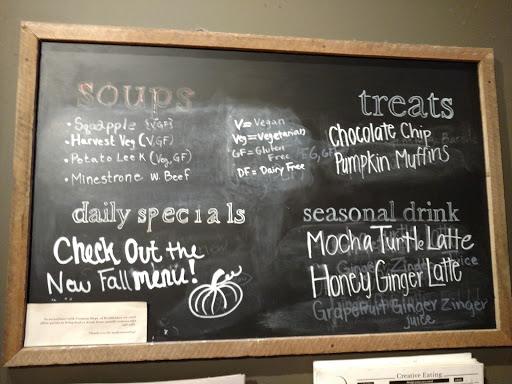 soups
• Sqapple {V,GF}
• Harvest Veg (V,GF)
• Potato Leek (Veg, GF)
• Minestrone w. Beef
V = Vegan
Veg = Vegetarian
GF = Gluten
Free
DF = Dairy Free
treats
Chocolate Chip
Pumpkin Muffins
daily specials
Check Out the
New Fall menu!
seasonal drink
Mocha Turtle Latte
Honey Ginger Latte
Grapefruit Ginger Zinger
juice
Creative Eating